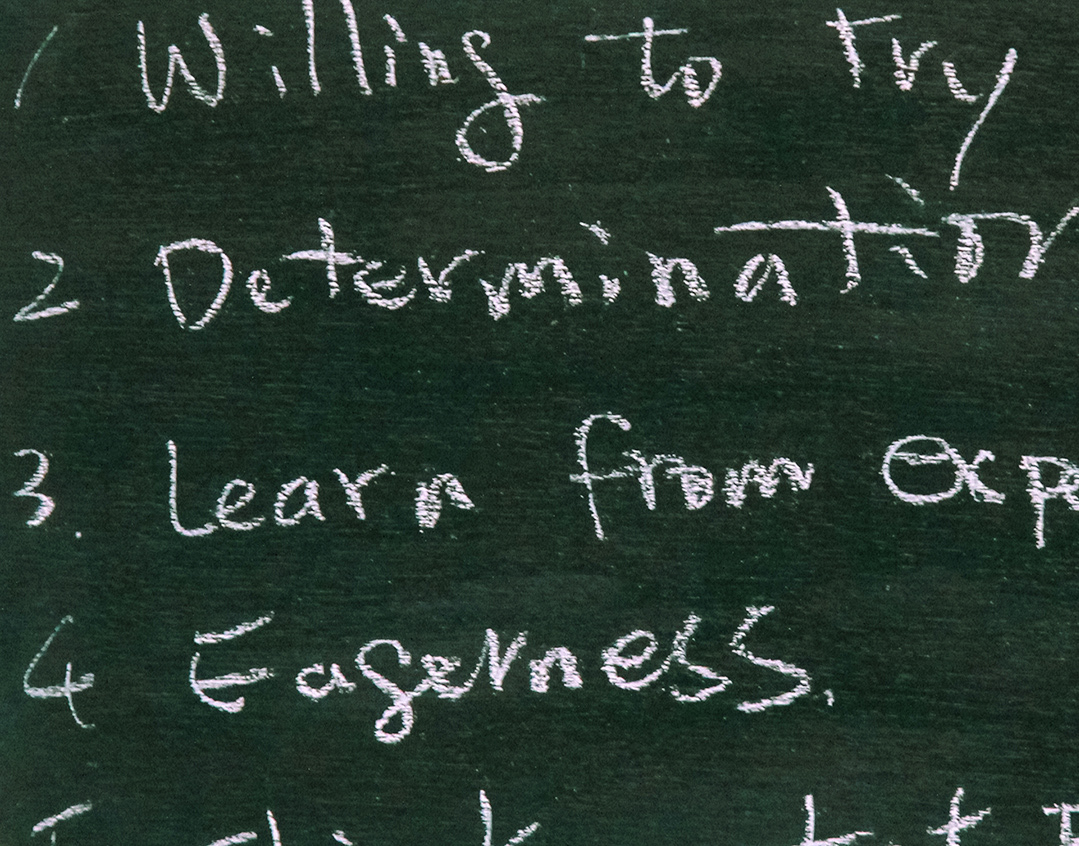 1 Willing to Try
2 Determination
3. Learn from exp
4 Eagerness.